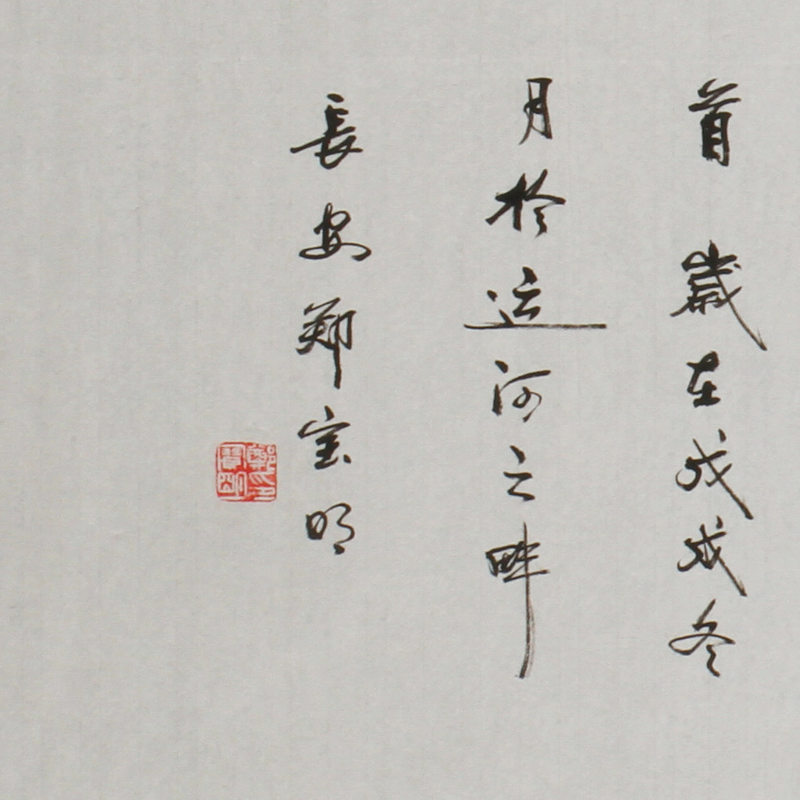 首 歲在戊戌冬
月於运河之畔
長安鄭宝明
鄭寶明印